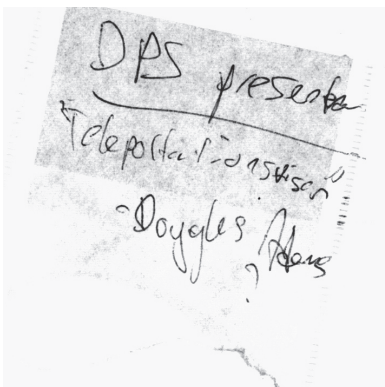 DPS presenter
"Teleportationstisch"
- Douglas Adams
?